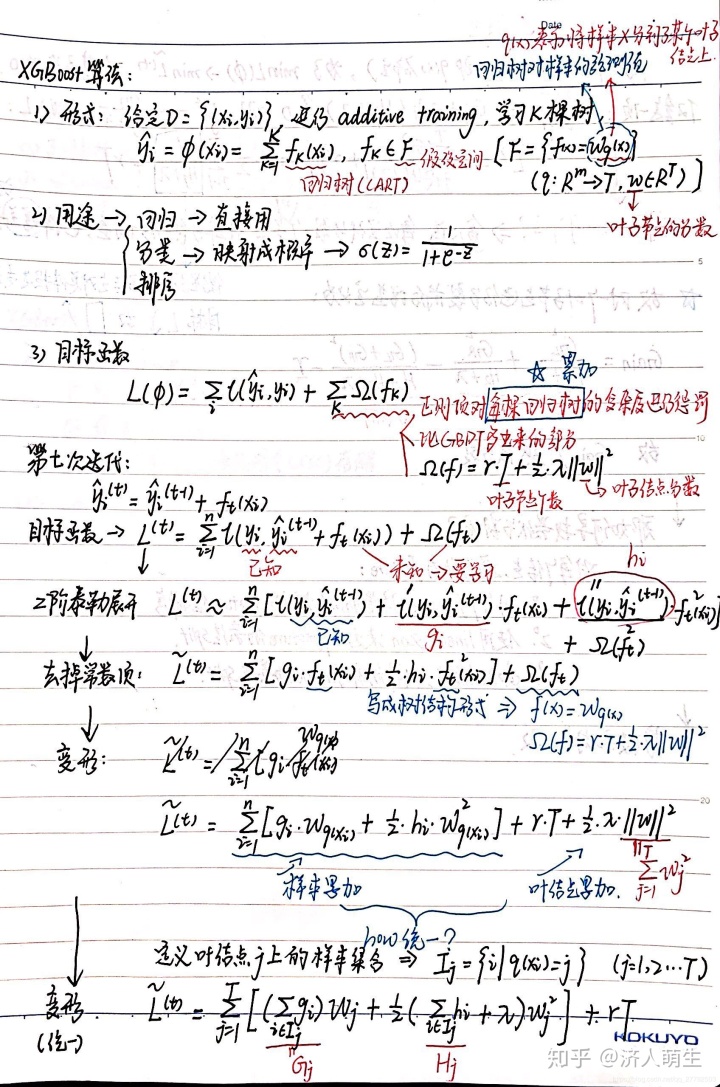 Date
q(x)表示将样本x分到了某个叶子结点上.
XGBoost算法:
回归树对样本的预测值
1) 形式: 给定D={(xi,yi)}, 进行 additive training, 学习K棵树
ŷi = φ(xi) = Σ_{k=1}^{K} fK(xi), fK∈F 假设空间 [F={f(x)=wq(x)}
回归树(CART)
(q: R^m→T, w∈R^T)]
叶子节点的分数
2) 用途 → 回归 → 直接用
分类 → 映射成概率 → σ(z) = 1/(1+e^{-z})
排序
3) 目标函数
☆ 累加
L(φ) = Σ_i l(ŷi,yi) + Σ_K Ω(fK)
正则项对每棵回归树的复杂度进行惩罚
比GBDT多出来的部分
Ω(f) = r·T + ½·λ||w||²
叶子节点个数
叶子结点分数
第t次迭代:
ŷi^(t) = ŷi^(t-1) + ft(xi)
目标函数 → L^(t) = Σ_{i=1}^{n} l(yi, ŷi^(t-1) + ft(xi)) + Ω(ft)
已知
未知 → 要学习
hi
2阶泰勒展开 L^(t) ≈ Σ_{i=1}^{n} [l(yi,ŷi^(t-1)) + l'(yi,ŷi^(t-1))·ft(xi) + l''(yi,ŷi^(t-1))/2·ft²(xi)]
已知
gi
+ Ω(ft)
去掉常数项: L̃^(t) = Σ_{i=1}^{n} [gi·ft(xi) + ½·hi·ft²(xi)] + Ω(ft)
写成树结构形式 ⇒ f(x) = wq(x)
Ω(f) = r·T + ½·λ||w||²
变形:
L̃^(t) = Σ_{i=1}^{n} [gi·wq(xi) + ½·hi·w²q(xi)] + r·T + ½·λ·||w||²
样本累加
叶结点累加.
Σ_{j=1}^{T} wj²
how 统一?
定义叶结点j上的样本集合 ⇒ Ij = {i|q(xi)=j} (j=1,2…T)
变形 L̃^(t) = Σ_{j=1}^{T} [(Σ_{i∈Ij} gi)wj + ½(Σ_{i∈Ij} hi + λ)wj²] + rT
(统一)
Gj
Hj
KOKUYO
知乎 @济人萌生